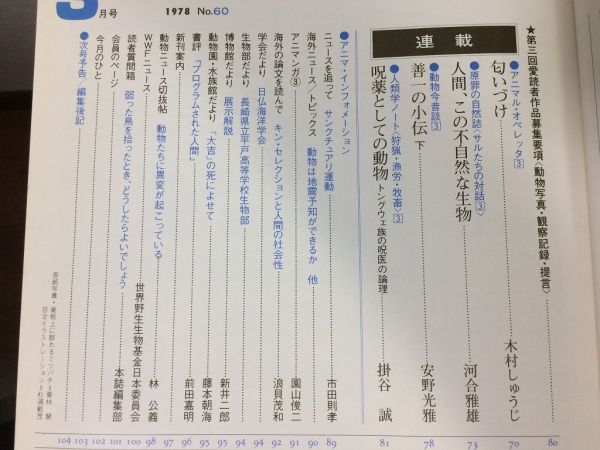 3月号
1978 No.60
★第三回愛読者作品募集要項〈動物写真・観察記録・提言〉 80
連載
●アニマル・オペレッタ③
匂いづけ 木村しゅうじ 70
●原罪の自然誌〈サルたちの対話③〉
人間、この不自然な生物 河合雅雄 73
●動物今昔談③
善一の小伝 下 安野光雅 78
●人類学ノート〈狩猟・漁労・牧畜〉③
呪薬としての動物 トングウェ族の呪医の論理 掛谷 誠 81
●アニマ・インフォメーション
ニュースを追って サンクチュアリ運動 市田則孝 89
海外ニュース/トピックス 動物は地震予知ができるか 他 90
アニマンガ③ 園山俊二 91
海外の論文を読んで キン・セレクションと人間の社会性 浪貝茂和 92
学会だより 日仏海洋学会 94
生物部だより 長崎県立平戸高等学校生物部 94
博物館だより 展示解説 新井二郎 95
動物園・水族館だより 「大吉」の死によせて 藤本朝海 95
書評 『プログラムされた人間』 前田嘉明 96
新刊案内 96
動物ニュース切抜帖 動物たちに異変が起こっている 林 公義 97
WWFニュース 世界野生生物基金日本委員会 98
読者質問箱 弱った鳥を拾ったとき、どうしたらよいでしょう 本誌編集部 100
会員のページ 101
今月のひと 102
●次号予告/編集後記 103 104
表紙写真・巣板上に群れるミツバチ=栗林 慧
目次イラストレーション=杉浦範茂